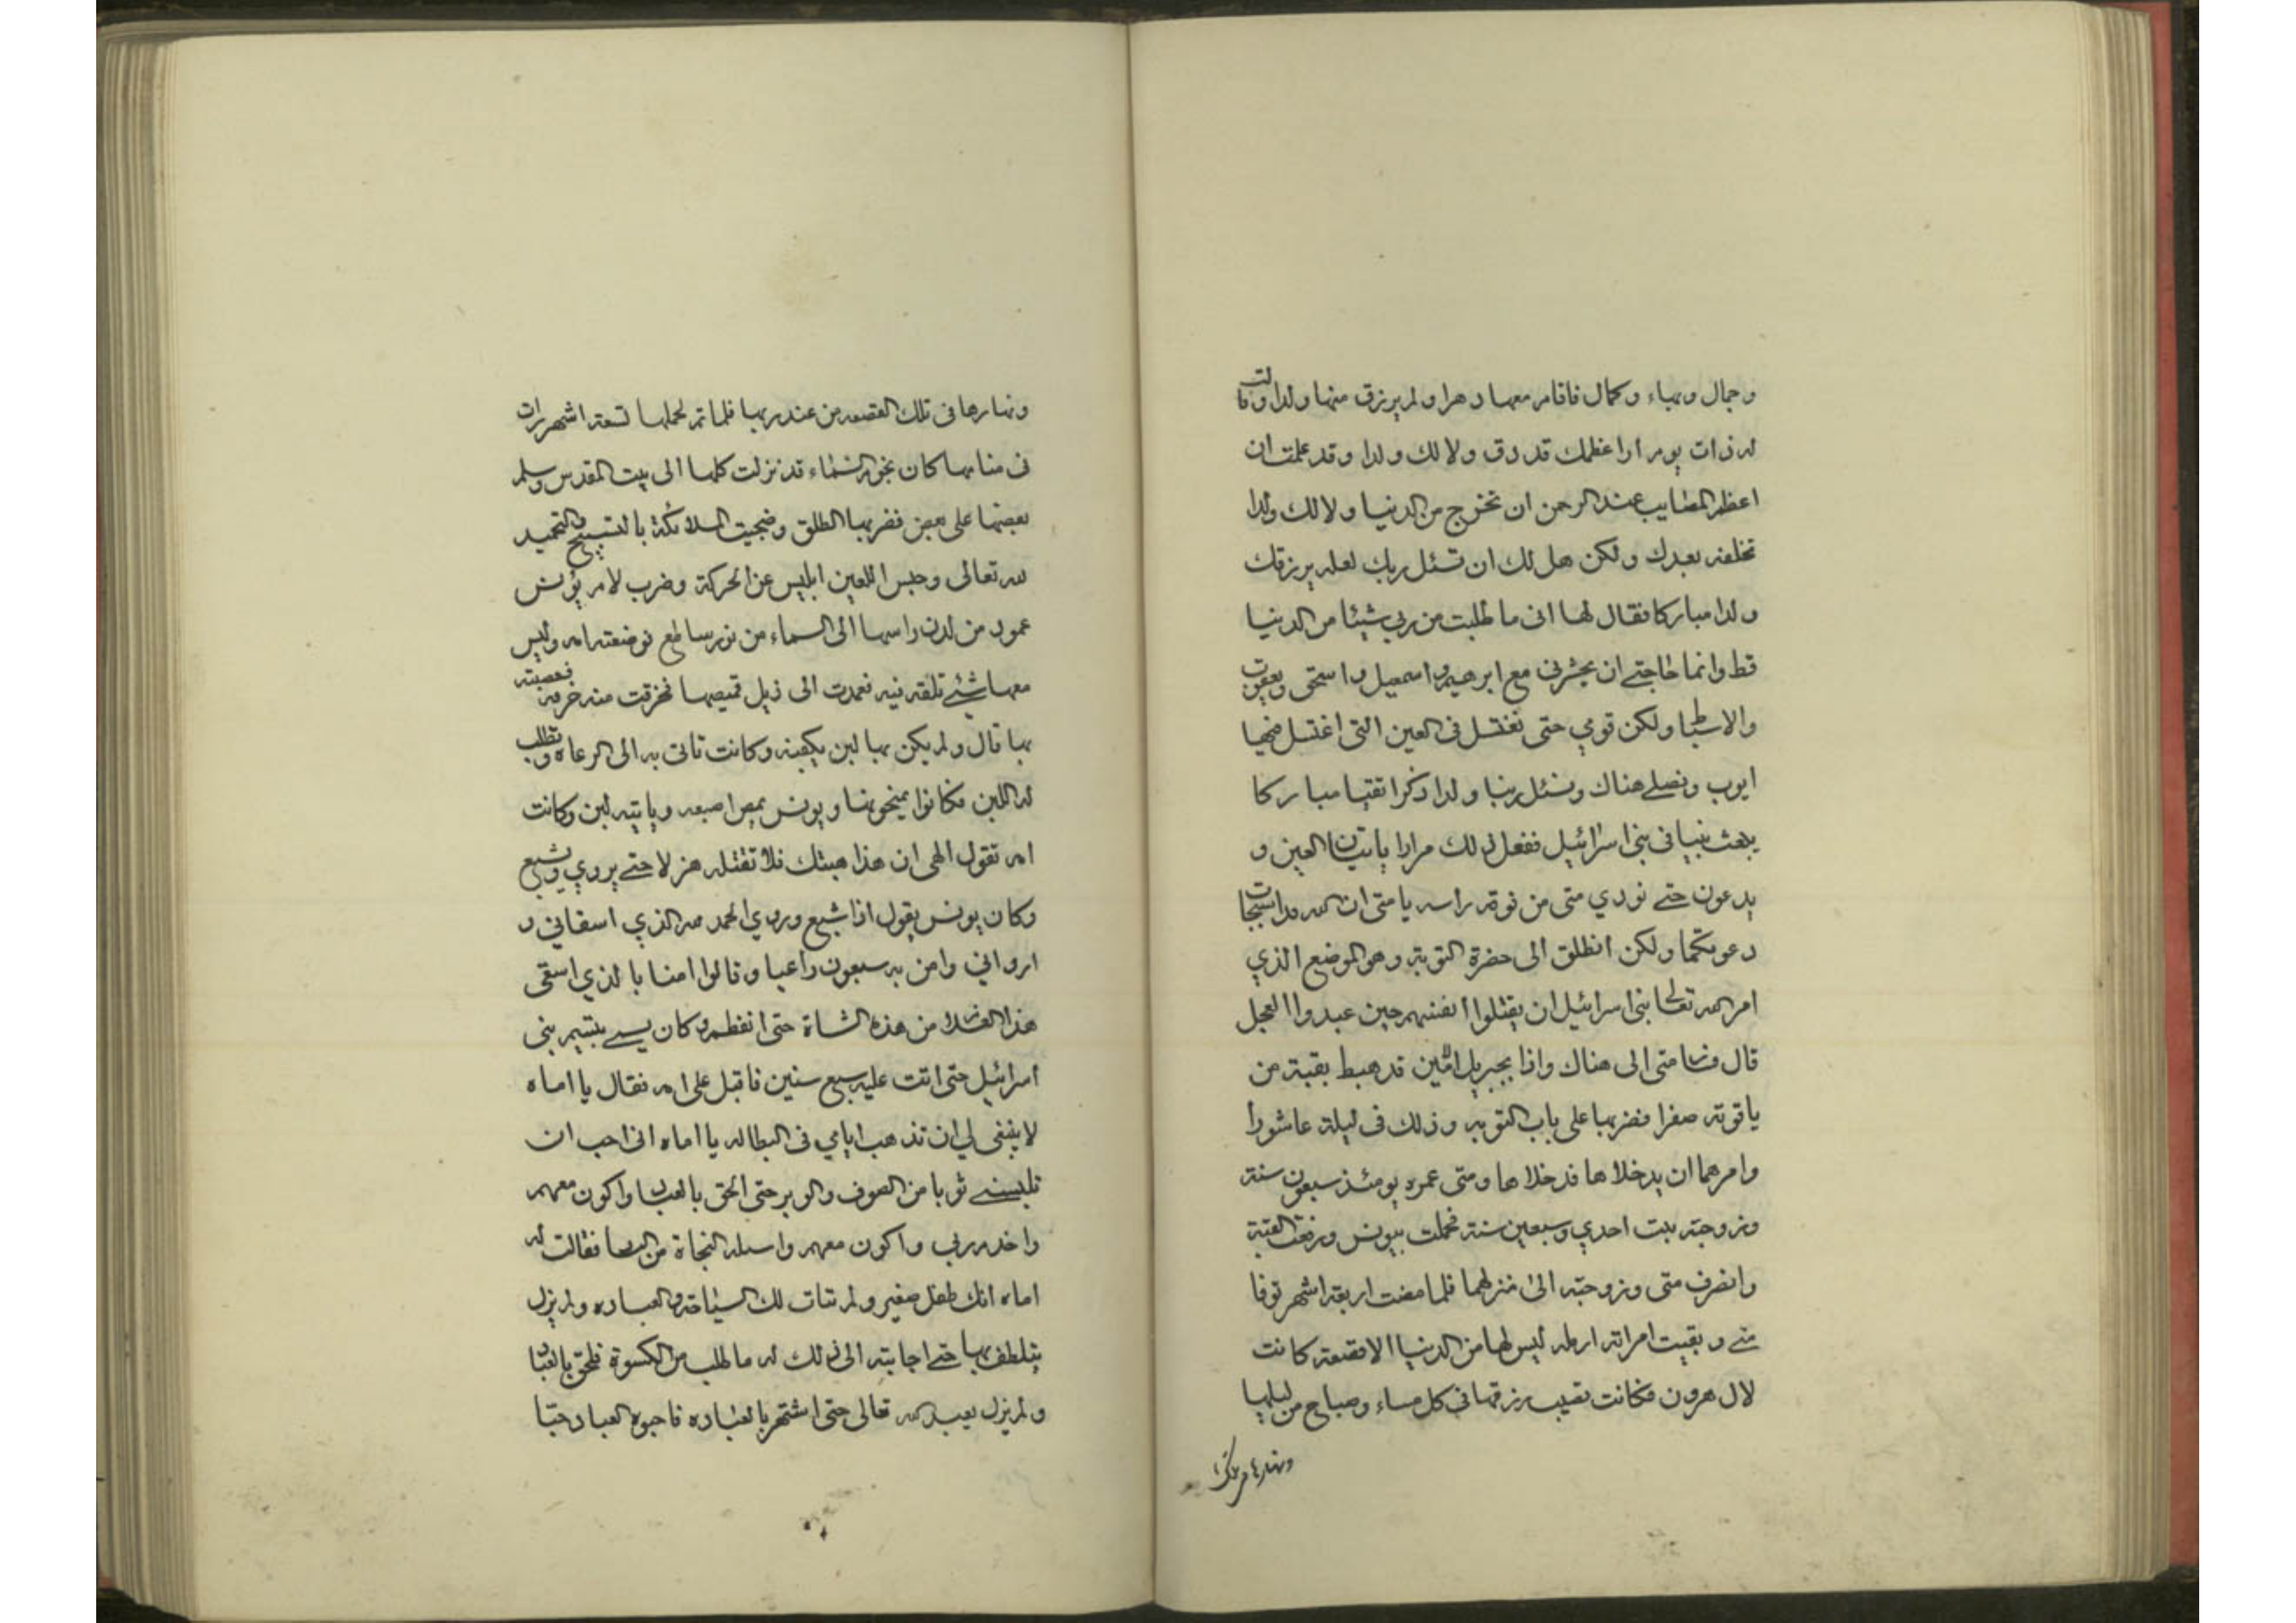 وجمال وبهاء وكمال فاقام معها دهرا ولم يرزق منها ولدا وقالت
له ذات يوم ارا عظمك قد دق ولا لك ولدا وقد علمت ان
اعظم المصايب عند الرحمن ان تخرج من الدنيا ولا لك ولدا
تخلفه بعدك ولكن هل لك ان تسئل ربك لعله يرزقك
ولدا مباركا فقال لها انى ما طلبت من ربي شيئا من الدنيا
قط وانما حاجتي ان يحشرنى مع ابرهيم واسمعيل واسحق ويعقوب
والاسباط ولكن قومي حتى نغتسل فى العين التى اغتسل فيها
ايوب ونصلي هناك ونسئل ربنا ولدا ذكرا تقيا مباركا
يبعث نبيا فى بنى اسرائيل ففعل ذلك مرارا ياتيان العين و
يدعون حتي نودي متى من فوق راسه يا متى ان الله قد استجاب
دعوتكما ولكن انطلق الى حضرة التوبة وهو الموضع الذي
امر الله تعالى بنى اسرائيل ان يقتلوا انفسهم حين عبدوا العجل
قال متى الى هناك واذا بجبريل الامين قد هبط بقبة من
ياقوتة صفرا فضربها على باب التوبه وذلك فى ليلة عاشورا
وامرهما ان يدخلاها فدخلاها ومتى عمره يومئذ سبعون سنة
وزوجته بنت احدي وسبعين سنة فحملت بيونس ورفعت القبة
وانصرف متى وزوجته الى منزلهما فلما مضت اربعة اشهر توفا
متي وبقيت امراته ارمله ليس لها من الدنيا الا قصعة كانت
لال هرون فكانت تصيب رزقها فى كل مساء وصباح من ليلها
ونهارها فى تلك
ونهارها فى تلك القصعه من عند ربها فلما تم لحملها تسعة اشهر رات
فى منامها كان نجوم السماء قد نزلت كلها الى بيت المقدس وسلم
بعضها على بعض فضربها الطلق وضجيت الملائكة بالتسبيح والتحميد
لله تعالى وحبس اللعين ابليس عن الحركة وضرب لام يونس
عمود من لدن راسها الى السماء من نور ساطع فوضعته امه وليس
معها شئي تلفه فيه فعمدت الى ذيل قميصها فخرقت منه خرقه فعصبته
بها قال ولم يكن بها لبن يكفيه وكانت تاتى به الى الرعاة وتطلب
له اللبن فكانوا يمنحونها ويونس يمص اصبعه وياتيه لبن وكانت
امه تقول الهى ان هذا هبتك فلا تقتله هزلا حتي يروي ويشبع
وكان يونس يقول اذا شبع وروي الحمد لله الذي اسقاني و
اروانى وامن به سبعون راعيا وقالوا امنا بالذي اسقى
هذا الغلام من هذه الشاة حتى انفطم وكان يسمي بيتيم بنى
اسرائيل حتى اتت عليه سبع سنين فاقبل على امه فقال يا اماه
لا ينبغى لي ان تذهب ايامي فى البطاله يا اماه انى احب ان
تلبسني ثوبا من الصوف والوبر حتى الحق بالعباد واكون معهم
واخدم ربي واكون معهم واسله النجاة من فقالت له
اماه انك طفل صغير ولم تتات لك السياحة والعباده ولم يزل
يتلطف بها حتي اجابته الى ذلك له ما طلب من الكسوة فلحق بالعباد
ولم يزل يعبد الله تعالى حتى اشتهر بالعباده فاحبوه العباد حبا